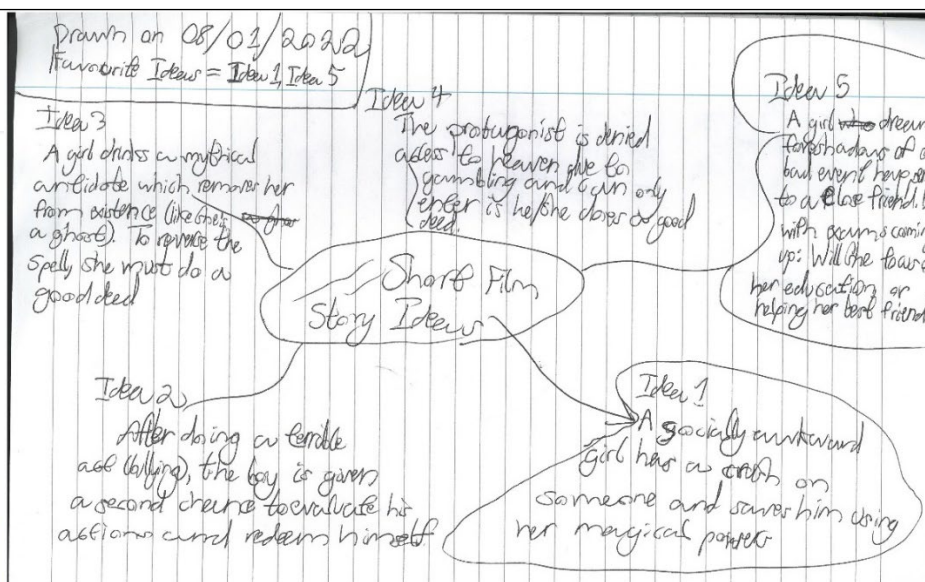 Drawn on 08/01/2022
Favourite Ideas = Idea 1, Idea 5
Idea 3
A girl drinks a mythical
antidote which removes her
from existence (like she's
a ghost). To reverse the
spell, she must do a
good deed
Idea 4
The protagonist is denied
access to heaven due to
gambling and can only
enter is he/she does a good
deed.
Idea 5
A girl who dream
foreshadows of a
bad event happen
to a close friend.
with exams comin
up: Will she focus
her education or
helping her best friend
Short Film
Story Ideas
Idea 2
After doing a terrible
act (bullying), the boy is given
a second chance to evaluate his
actions and redeem himself
Idea 1
A socially awkward
girl has a crush on
someone and saves him using
her magical powers